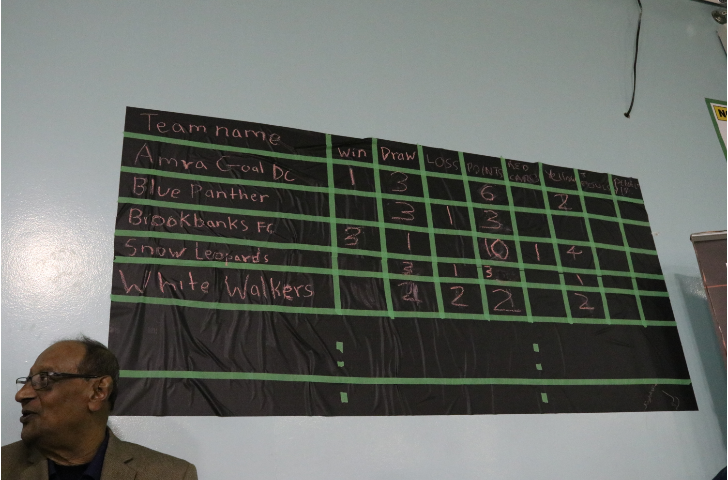 Team name Win Draw LOSS POINTS RED CARD Yellow
Amra Goal DC 1 3 6 2
Blue Panther 3 1 3
Brookbanks FC 3 1 10 1 4
Snow Leopards 3 1 3 1
White Walkers 2 2 2 2